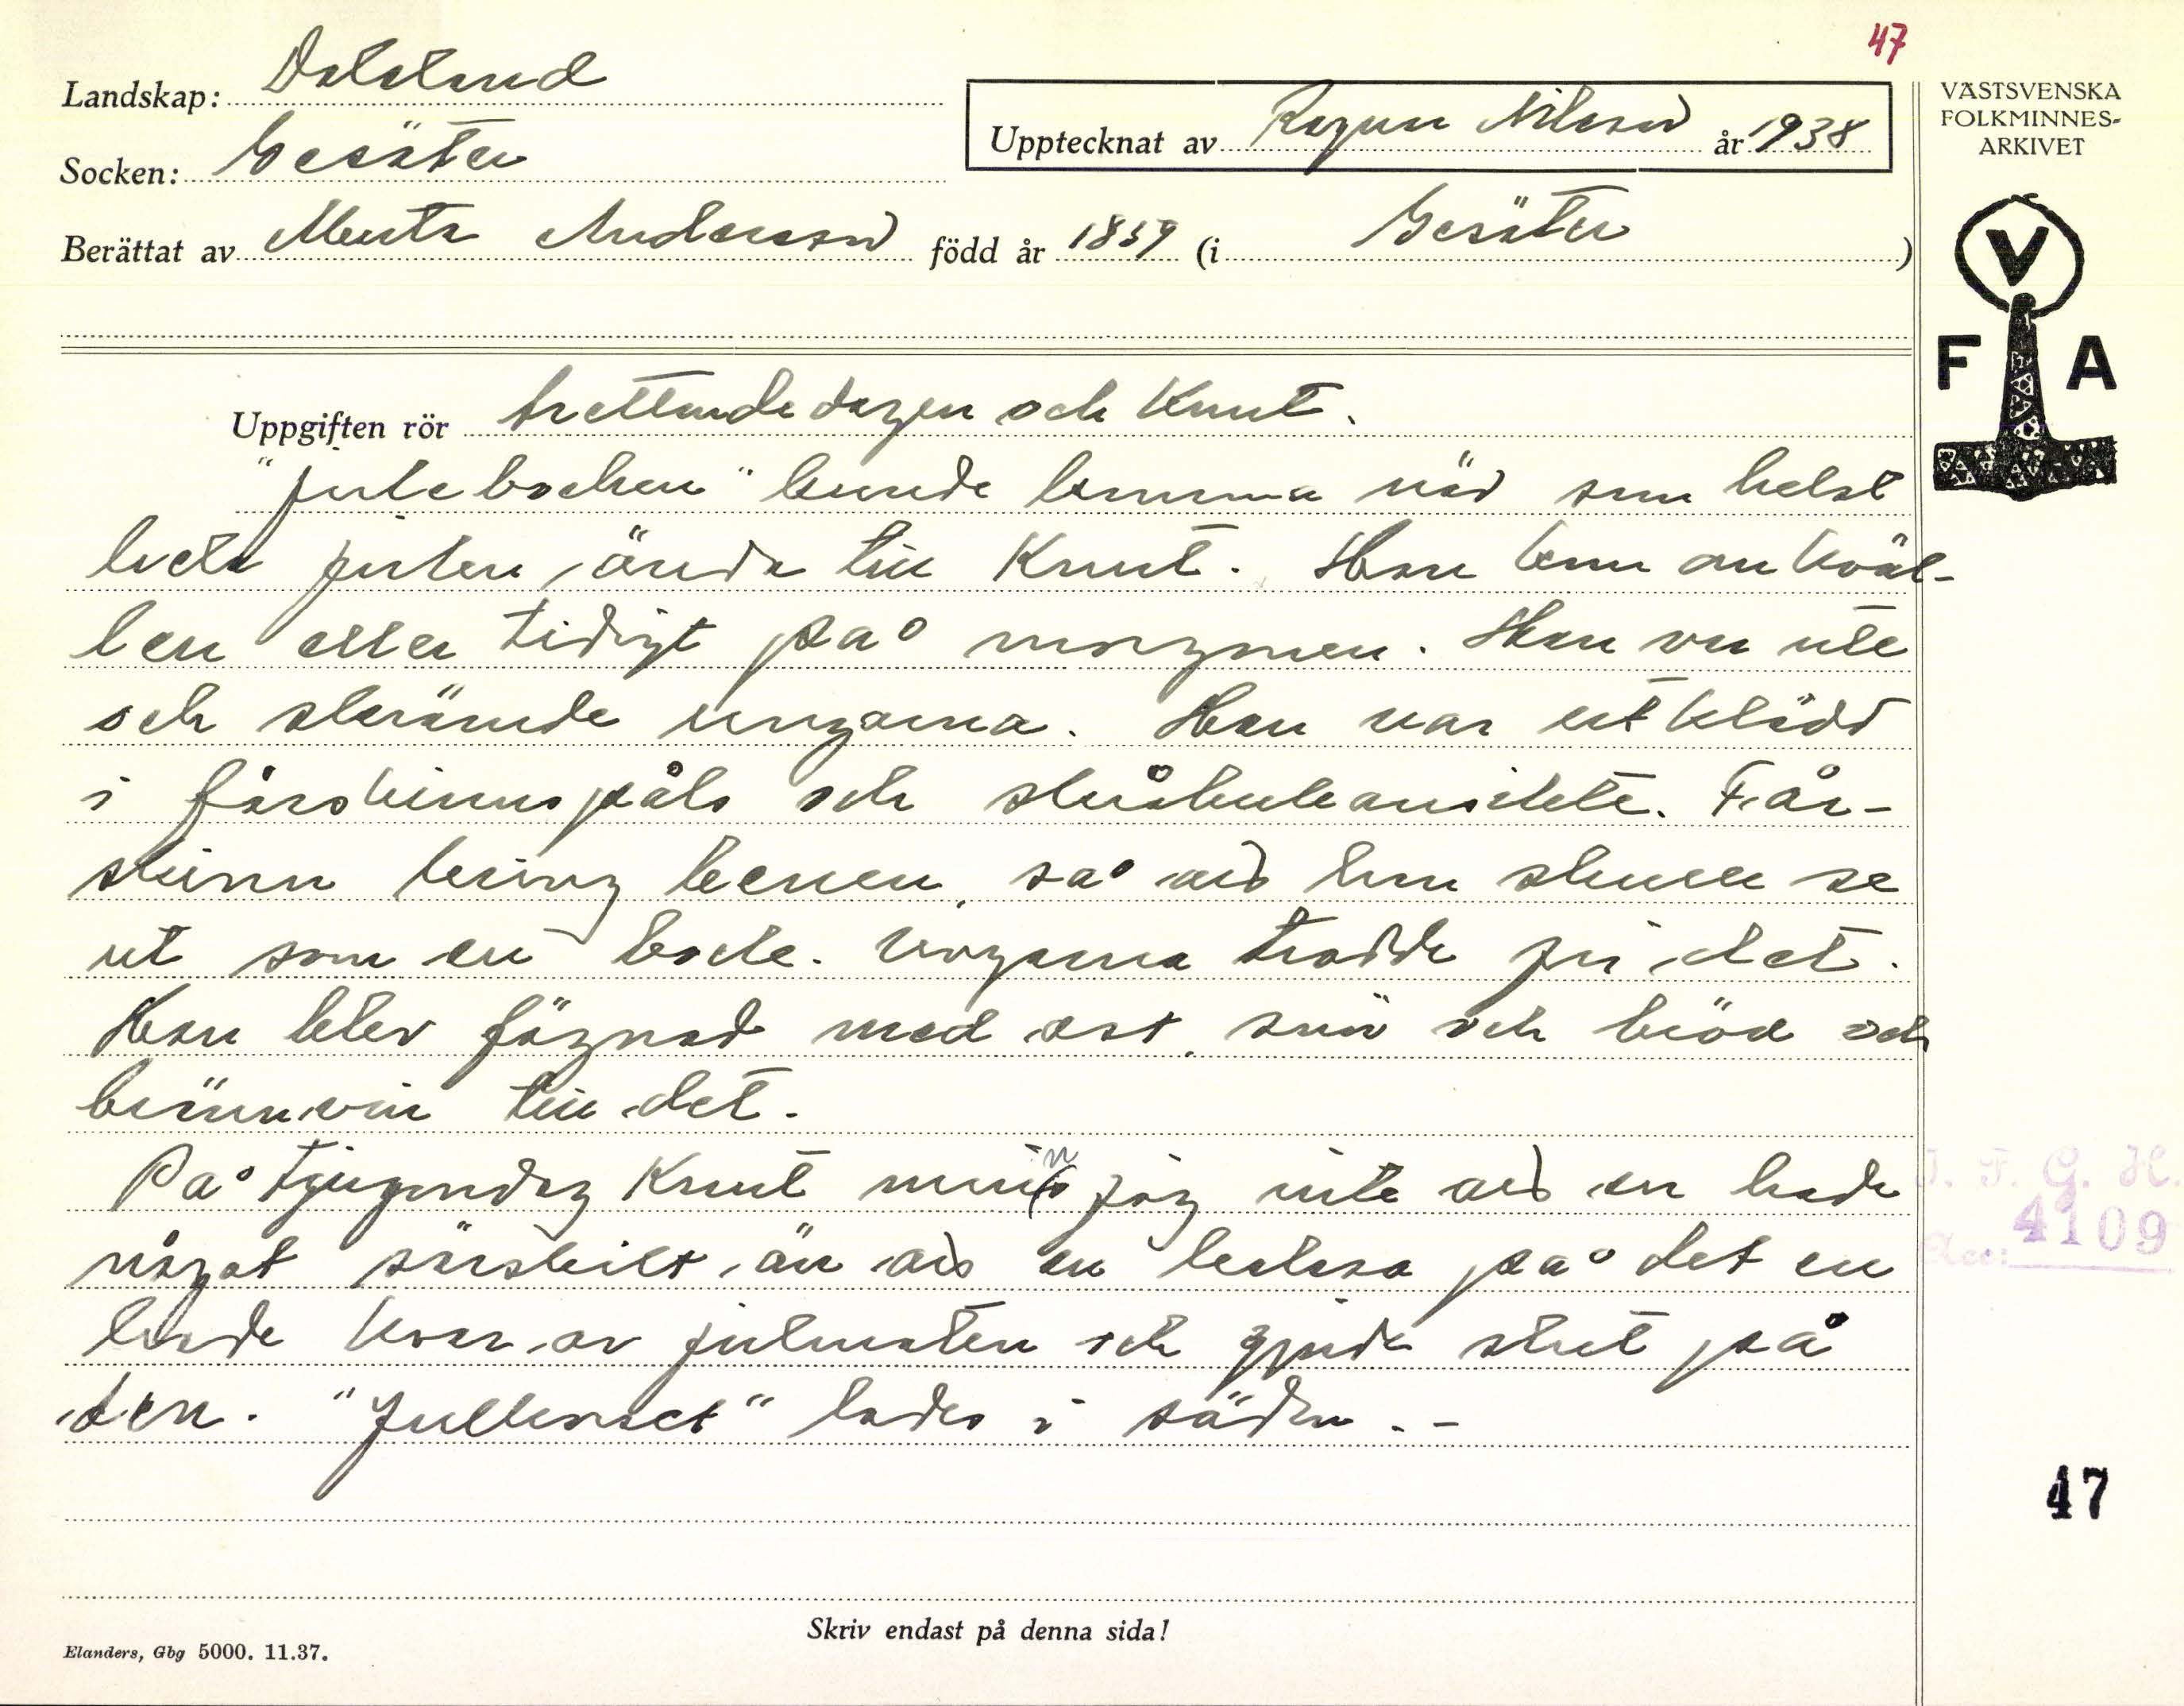 47
Landskap: Dalsland
Upptecknat av Ragnar Nilsson år 1938
Socken: Gesäter
Berättat av Märta Andersson född år 1859 (i Gesäter)
VÄSTSVENSKA
FOLKMINNES-
ARKIVET
V
F A
Uppgiften rör trettondedagen och Knut.
"Julebocken" kunde komma när som helst
hela julen, ända till Knut. Han kom om kväl-
len eller tidigt på morgonen. Han var ute
och skrämde ungarna. Han var utklädd
i fårskinnspäls och skråbukansikte. Får-
skinn kring benen, så att han skulle se
ut som en bock. Ungarna trodde ju det.
Han blev fägnad med ost, smör och bröd och
brännvin till det.
På tjugondag Knut minns jag inte att en hade
något särskilt, än att en bälsa på det en
hade kvar av julmaten och gjorde slut på
den. "Julkuset" lades i säden. -
I. F. G. H.
Acc: 4109
47
Skriv endast på denna sida!
Elanders, Gbg 5000. 11.37.